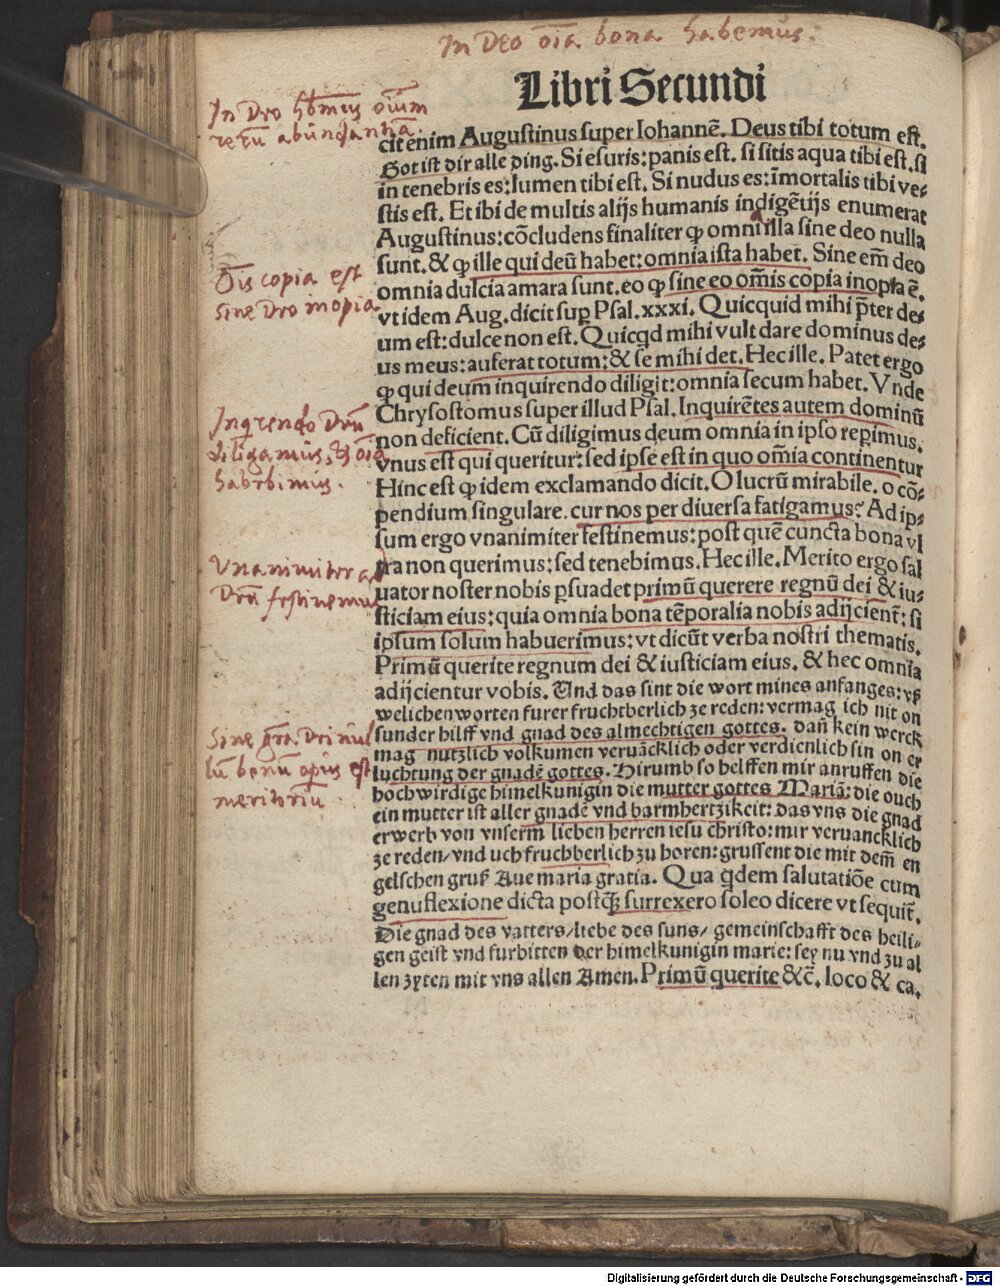 In Deo oīa bona habemus:
Libri Secundi
In Deo hēmus oīum
rerū abundantiā.
cit enim Augustinus super Iohannē. Deus tibi totum est.
Got ist dir alle ding. Si esuris: panis est. si sitis aqua tibi est. si
in tenebris es: lumen tibi est. Si nudus es: īmortalis tibi ve⸗
stis est. Et ibi de multis alijs humanis indigētijs enumerat
Augustinus: cōcludens finaliter ꝙ omni illa sine deo nulla
sunt. & ꝙ ille qui deū habet: omnia ista habet. Sine em̄ deo
Oīs copia est
sine Deo inopia
omnia dulcia amara sunt. eo ꝙ sine eo om̄is copia inopia ē.
vt idem Aug. dicit suꝑ Psal. xxxi. Quicquid mihi p̄ter de⸗
um est: dulce non est. Quicqd mihi vult dare dominus de⸗
us meus: auferat totum: & se mihi det. Hec ille. Patet ergo
ꝙ qui deum inquirendo diligit: omnia secum habet. Vnde
Inqrendo Deū
diligamus, & oīa
habebimus.
Chrysostomus super illud Psal. Inquirētes autem dominū
non deficient. Cū diligimus deum omnia in ipso reperimus.
vnus est qui queritur: sed ipse est in quo om̄ia continentur
Hinc est ꝙ idem exclamando dicit. O lucrū mirabile. o cō⸗
pendium singulare. cur nos per diuersa fatigamus? Ad ip⸗
sum ergo vnanimiter festinemus: post quē cuncta bona vl
Vnanimiter ad
Deū festinemus
tra non querimus: sed tenebimus. Hec ille. Merito ergo sal
uator noster nobis ꝑsuadet primū querere regnū dei & iu⸗
sticiam eius: quia omnia bona tēporalia nobis adijcient̄: si
ipsum solum habuerimus: vt dicūt verba nostri thematis.
Primū querite regnum dei & iusticiam eius. & hec omnia
adijcientur vobis. Und das sint die wort mines anfanges: vß
welichen worten furer fruchtberlich ze reden: vermag ich nit on
Sine grā Dei nul
lū bonū opus est
meritoriū.
sunder hilff vnd gnad des almechtigen gottes. dañ kein werck
mag nutzlich volkumen veruäcklich oder verdienlich sin on er
luchtung der gnadē gottes. Hirumb so helffen mir anruffen die
hochwirdige himelkunigin die mutter gottes Mariā: die ouch
ein mutter ist aller gnadē vnd barmhertzikeit: das vns die gnad
erwerb von vnserm lieben herren iesu christo: mir veruancklich
ze reden/ vnd uch fruchberlich zu horen: grussent die mit dem̄ en
gelschen gruß Aue maria gratia. Qua qdem salutatiōe cum
genuflexione dicta postqȝ surrexero soleo dicere vt sequit̄.
Die gnad des vatters/ liebe des suns/ gemeinschafft des heili⸗
gen geist vnd furbitten der himelkunigin marie: sey nu vnd zu al
len zyten mit vns allen Amen. Primū querite &c̄. loco & ca.
Digitalisierung gefördert durch die Deutsche Forschungsgemeinschaft - DFG